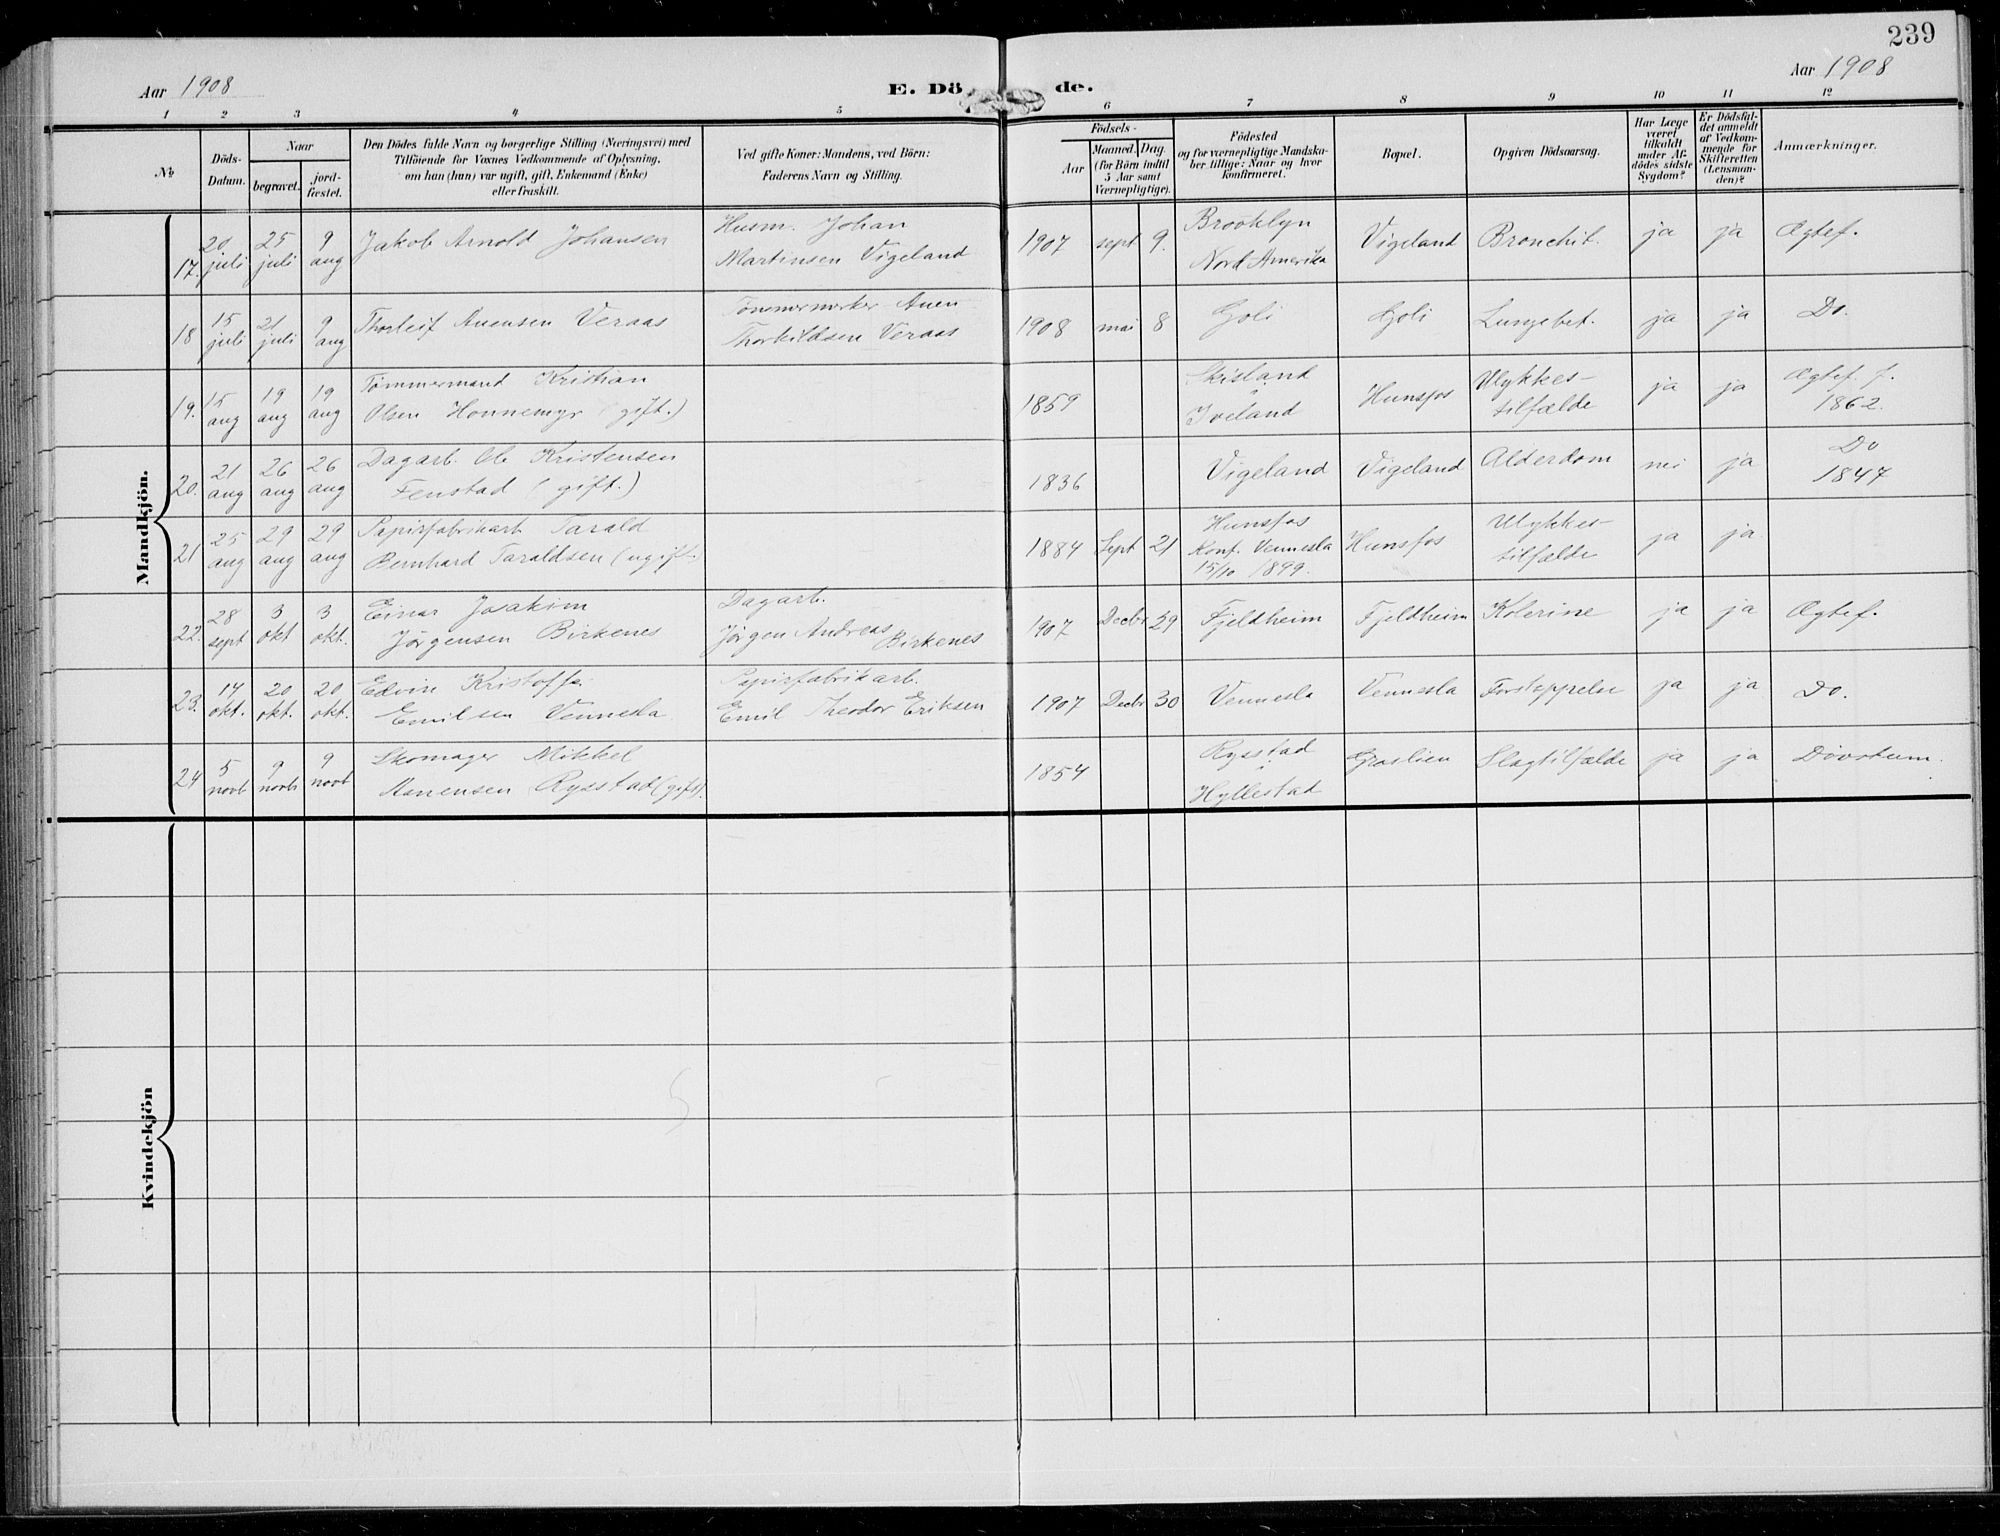 239
Aar 1908
E. Dö de.
Aar 1908
1 2 3 4 5 6 7 8 9 10 11 12
№
Döds-Datum.
Naar
begravet.
jord-fæstet.
Den Dödes fulde Navn og borgerlige Stilling (Næringsvei) med
Tilföiende for Voxnes Vedkommende af Oplysning,
om han (hun) var ugift, gift, Enkemand (Enke)
eller fraskilt.
Ved gifte Koner: Mandens, ved Börn:
Faderens Navn og Stilling.
Födsels-
Aar
Maaned. Dag
(for Börn indtil
5 Aar samt
Værnepligtige).
Födested
og for værnepligtige Mandska-
ber tillige: Naar og hvor
konfirmeret.
Bopæl.
Opgiven Dödsaarsag.
Har Læge
været
tilkaldt
under Af-
dödes sidste
Sygdom?
Er Dödsfal-
det anmeldt
af Vedkom-
mende for
Skifteretten
(Lensman-
den)?
Anmærkninger.
Mandkjön.
17. 20 juli 25 juli 9 aug Jakob Arnold Johansen Husm. Johan Martinsen Vigeland 1907 sept 9. Brooklyn Nord Amerika Vigeland Bronchit. ja ja Ægtef.
18 15 juli 21 juli 9 aug Thorleif Anensen Veraas Tømmermerker Anen Thorkildsen Veraas 1908 mai 8 Goli Goli Lungebet. ja ja Do.
19. 15 aug 19 aug 19 aug Tømmermand Kristian Olsen Honnemyr (gift.) 1859 Skisland Iveland Hunsfos Ulykkes-tilfælde ja ja Ægtef. f. 1862.
20. 21 aug 26 aug 26 aug Dagarb. Ole Kristensen Fenstad (gift.) 1836 Vigeland Vigeland Alderdom nei ja Do 1847
21 25 aug 29 aug 29 aug Papirfabrikarb Tarald Bernhard Taraldsen (ugift.) 1884 Sept 21 Hunsfos Konf. Vennesla 15/10 1899. Hunsfos Ulykkes-tilfælde ja ja
22. 28 sept 3 okt 3 okt. Einar Joakim Jørgensen Birkenes Dagarb. Jørgen Andreas Birkenes 1907 Decbr 29 Fjeldheim Fjeldheim Kolerine ja ja Ægtef.
23. 14 okt. 20 okt. 20 okt. Edvin Kristoffer Emilsen Vennesla Papirfabrikarb. Emil Theodor Eriksen 1907 Decbr 30 Vennesla Vennesla Forstoppelse ja ja Do.
24 5 novb 9 novb 9 novb Skomager Mikkel Aanensen Rysstad (gift). 1854 Rysstad Hyllestad Graslien Slagtilfælde ja ja Døvstum.
Kvindekjön